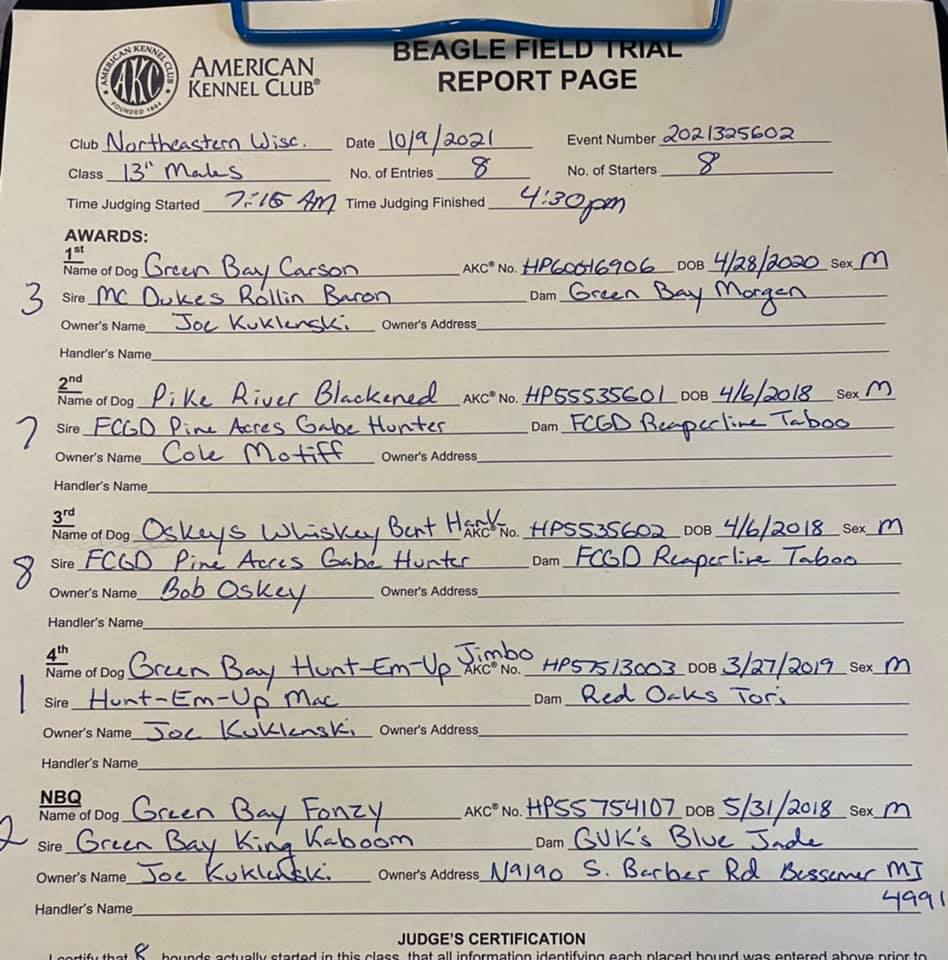 BEAGLE FIELD TRIAL
REPORT PAGE
AMERICAN KENNEL CLUB
AKC
FOUNDED 1884
AMERICAN
KENNEL CLUB®
Club Northeastern Wisc. Date 10/9/2021 Event Number 2021325602
Class 13" Males No. of Entries 8 No. of Starters 8
Time Judging Started 7:15 AM Time Judging Finished 4:30pm
AWARDS:
1st
Name of Dog Green Bay Carson AKC® No. HP60616906 DOB 4/28/2020 Sex M
3 Sire MC Dukes Rollin Baron Dam Green Bay Morgan
Owner's Name Joe Kuklenski Owner's Address
Handler's Name
2nd
Name of Dog Pike River Blackened AKC® No. HP55535601 DOB 4/6/2018 Sex M
7 Sire FCGD Pine Acres Gabe Hunter Dam FCGD Reaperline Taboo
Owner's Name Cole Motiff Owner's Address
Handler's Name
3rd
Name of Dog Oskeys Whiskey Bent Hank AKC® No. HP5535602 DOB 4/6/2018 Sex M
8 Sire FCGD Pine Acres Gabe Hunter Dam FCGD Reaperline Taboo
Owner's Name Bob Oskey Owner's Address
Handler's Name
4th
Name of Dog Green Bay Hunt-Em-Up Jimbo AKC® No. HP57513003 DOB 3/27/2019 Sex M
1 Sire Hunt-Em-Up Mac Dam Red Oaks Tori
Owner's Name Joe Kuklenski Owner's Address
Handler's Name
NBQ
Name of Dog Green Bay Fonzy AKC® No. HP55754107 DOB 5/31/2018 Sex M
2 Sire Green Bay King Kaboom Dam GUK's Blue Jade
Owner's Name Joe Kuklenski Owner's Address N9190 S. Barber Rd Bessemer MI
4991
Handler's Name
JUDGE'S CERTIFICATION
I certify that 8 hounds actually started in this class, that all information identifying each placed hound was entered above prior to